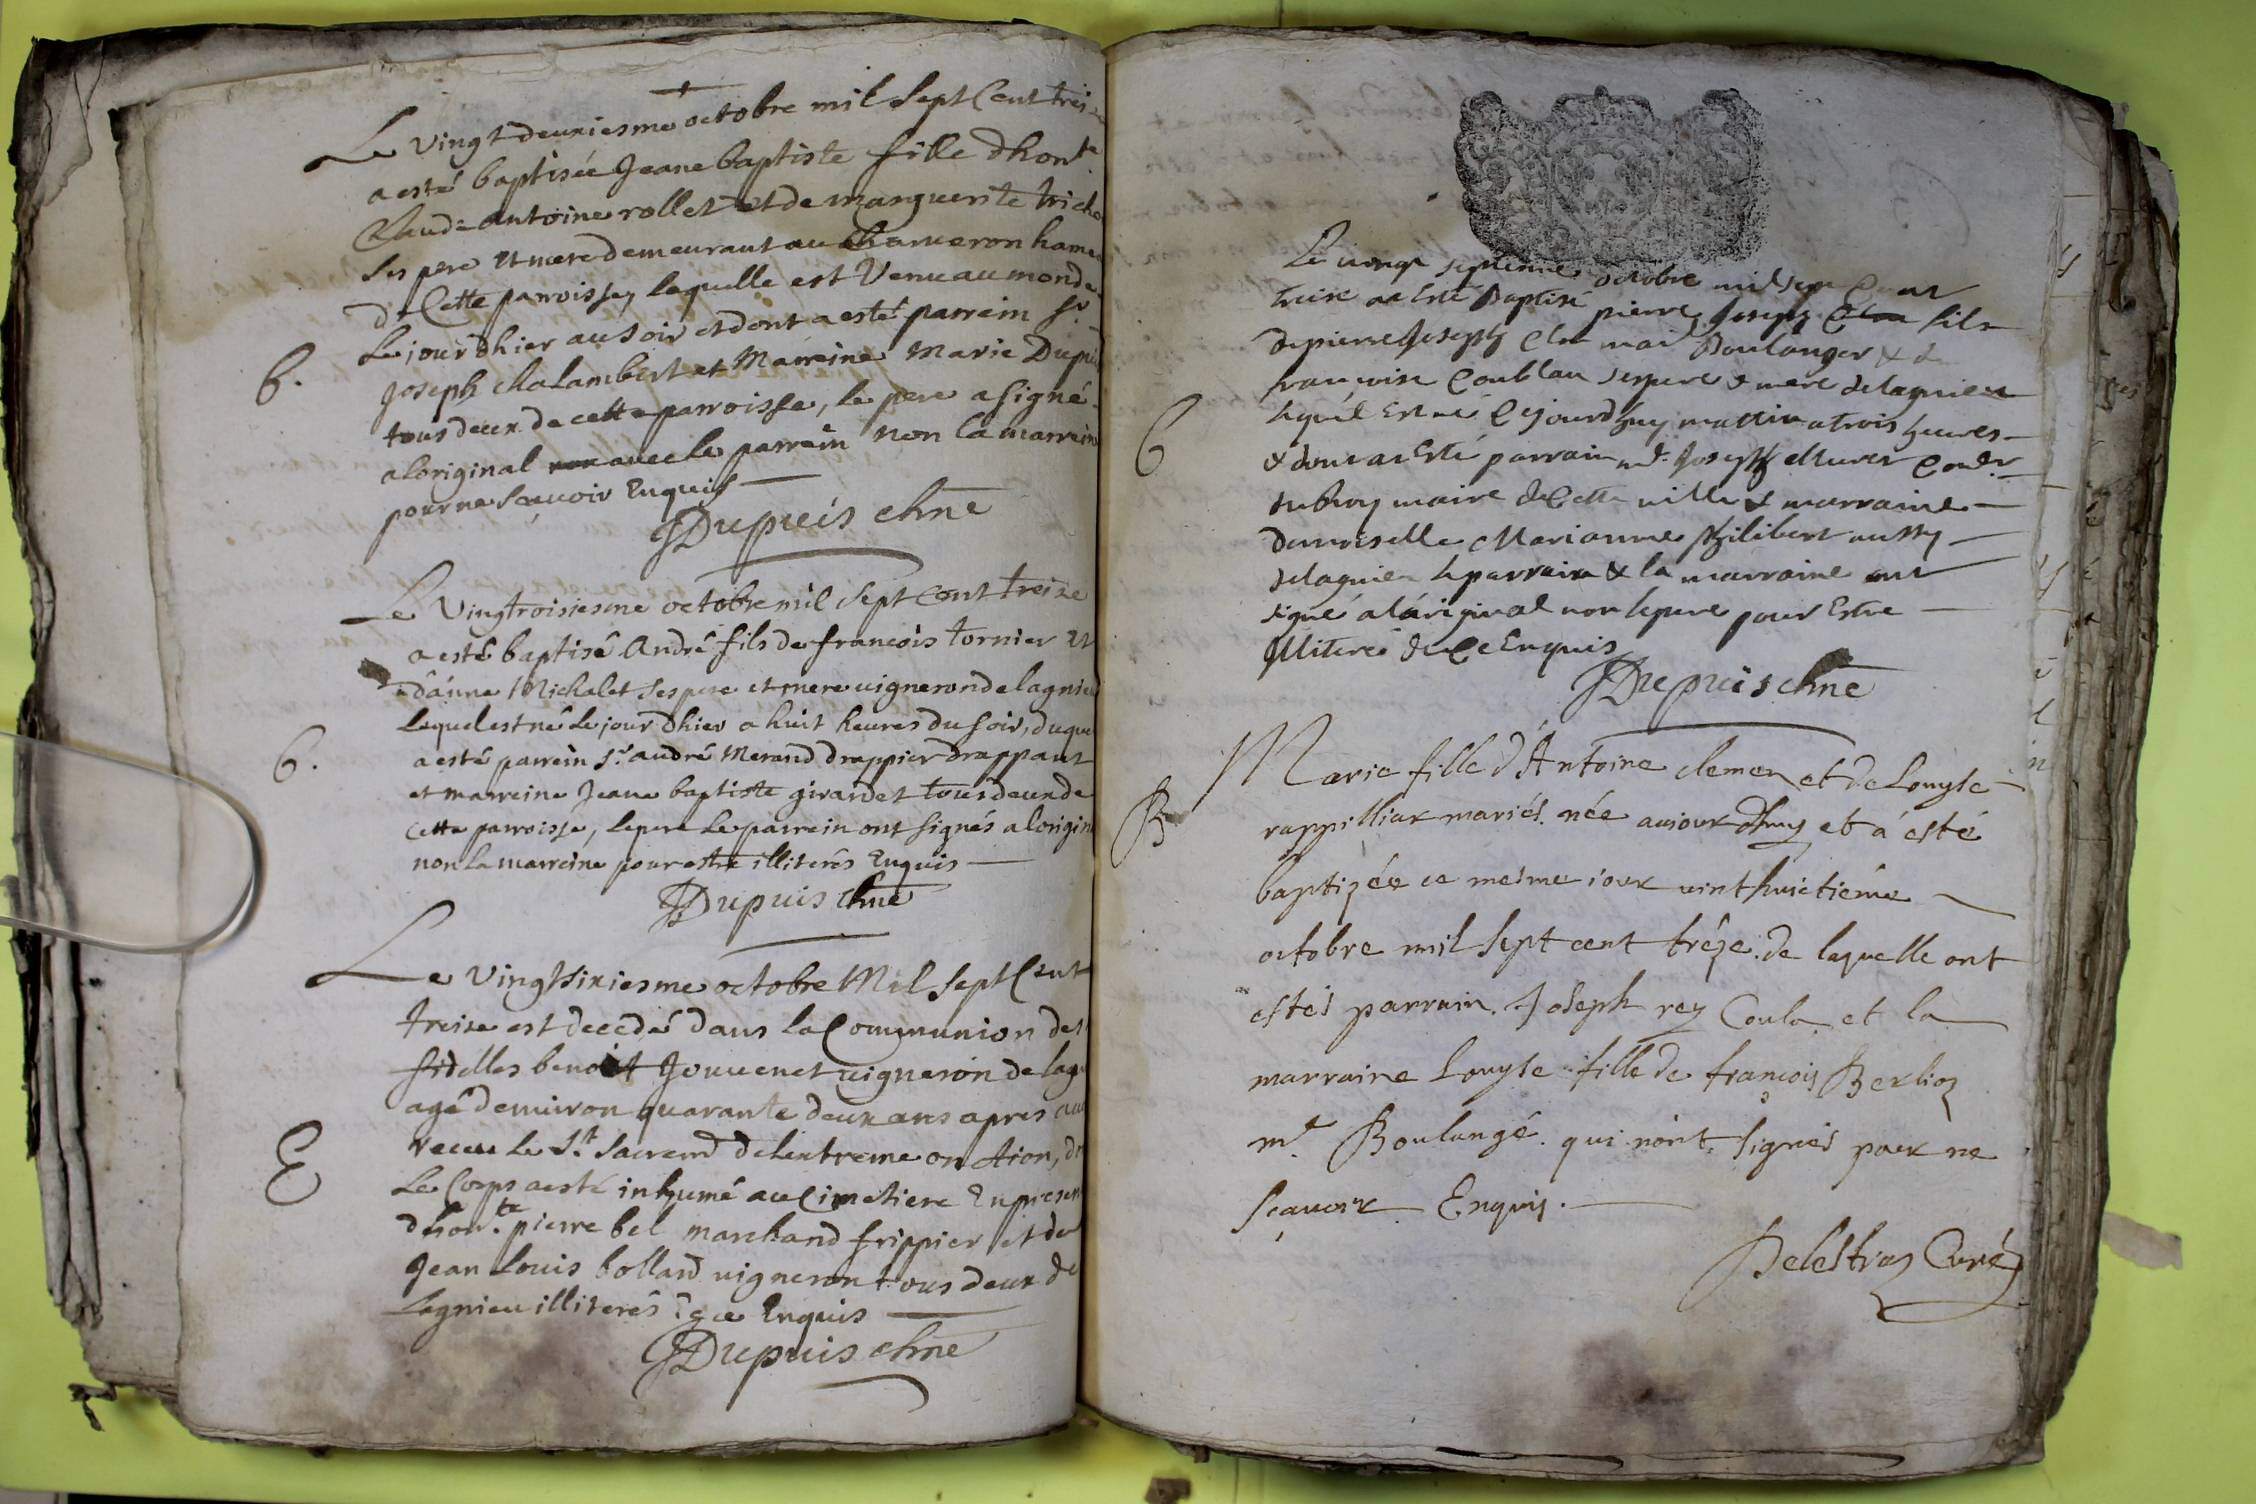 Le vingt deuxiesme octobre mil sept Cent trei-
a esté baptisée Jeane baptiste fille dhon.te
Claude antoine rollet et de marguerite
ses pere et mere demeurant au Charveron hame
de Cette parroisse, laquelle est Venue au monde
Le jour dhier au soir et dont a esté parrein sr.
b.
Joseph chalambert et Marreine Marie Dupui
tous deux de cette parroisse, le pere a signé
a loriginal avec le parrein non la marreine
pour ne scavoir Enquis
JDupuis chne
Le Vingtroisiesme octobre mil sept Cent treize
a esté baptisé André fils de francois tornier et
danne Michalet ses pere et mere vigneron de lagnieu
Lequel est né Le jour dhier a huit heures du soir, duquel
6.
a esté parrein sr. andré Merand drappier drappant
et marreine Jeane baptiste girardet tous deux de
Cette parroisse, le pere Le parrein ont signés a lorigin
non la marreine pour estre illiterés Enquis
JDupuis chne
Le Vingtsixiesme octobre Mil sept Cent
treize est decedé dans la Communion des
fidelles benoit Jouvenet vigneron de lag
agé denviron quarante deux ans apres
receu Le St. Sacremt de lextreme onction,
E
Le Corps a esté inhumé au Cimetiere En presen
dhon.te pierre bel marchand frippier et de
Jean Louis bollard vigneron tous deux de
Lagnieu illiterés de ce Enquis
JDupuis chne
Le vingt septieme octobre mil sept Cent
treise at Esté Baptisé pierre Joseph fils
de pierre Joseph mai Boulanger & de
francoise Coublan ses pere & mere de lagnieu
lequel Est né Cejourdhuy mattin a trois heures
6
& dont at Esté parrain mr. Joseph
du Roy maire de Cette ville & marraine
demoiselle Marianne philibert aussy
de lagnieu le parrain & la marraine ont
signé a lariginal non le pere pour Estre
Illiteré de Ce Enquis
JDupuis chne
Marie fille d'Antoine clemen et de Louyse
B
rappilliar mariés. née aujourdhuy et a esté
baptizée ce mesme jour vint huictiéme
octobre mil sept cent tréze. de laquelle ont
estés parrain. Joseph rey Coula. et la
marraine Louyse fille de françois Berlioz
mt. Boulangé. qui nont signés pour ne
sçavoir Enquis.
Delestraz Curé